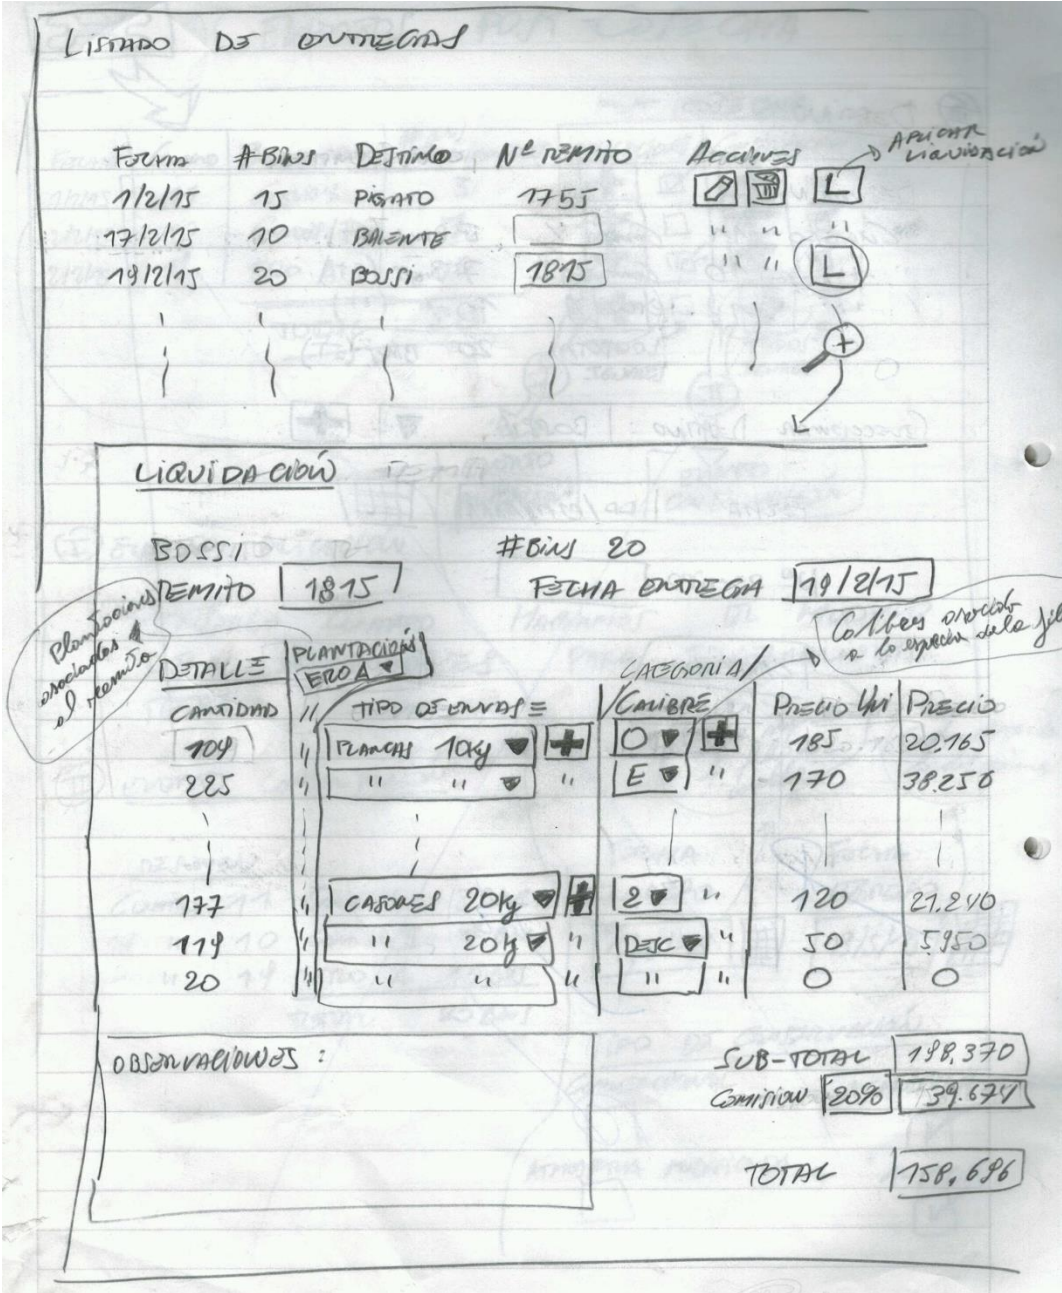 LISTADO DE ENTREGAS
FECHA #BINS DESTINO Nº REMITO ACCIONES APLICAR LIQUIDACIÓN
1/2/15 15 PIGATO 1755 L
17/2/15 10 BALENTE " " " "
19/2/15 20 BOSSI 1815 " " L
LIQUIDACIÓN
BOSSI #BINS 20
REMITO 1815 FECHA ENTREGA 19/2/15
Plantaciones asociadas al remito
Calibres asociado a la especie de la
DETALLE PLANTACIÓN CATEGORIA/
ERO A
CANTIDAD " TIPO DE ENVASE CALIBRE PRECIO Uni PRECIO
109 " PLANCHAS 10kg + O + 185 20.165
225 " " " " E " 170 38.250
177 " CAJONES 20kg + 2 " 120 21.240
119 " " 20kg " DESC " 50 5950
20 " " " " " " 0 0
OBSERVACIONES : SUB-TOTAL 198,370
COMISION 20% 39.674
TOTAL 158,696